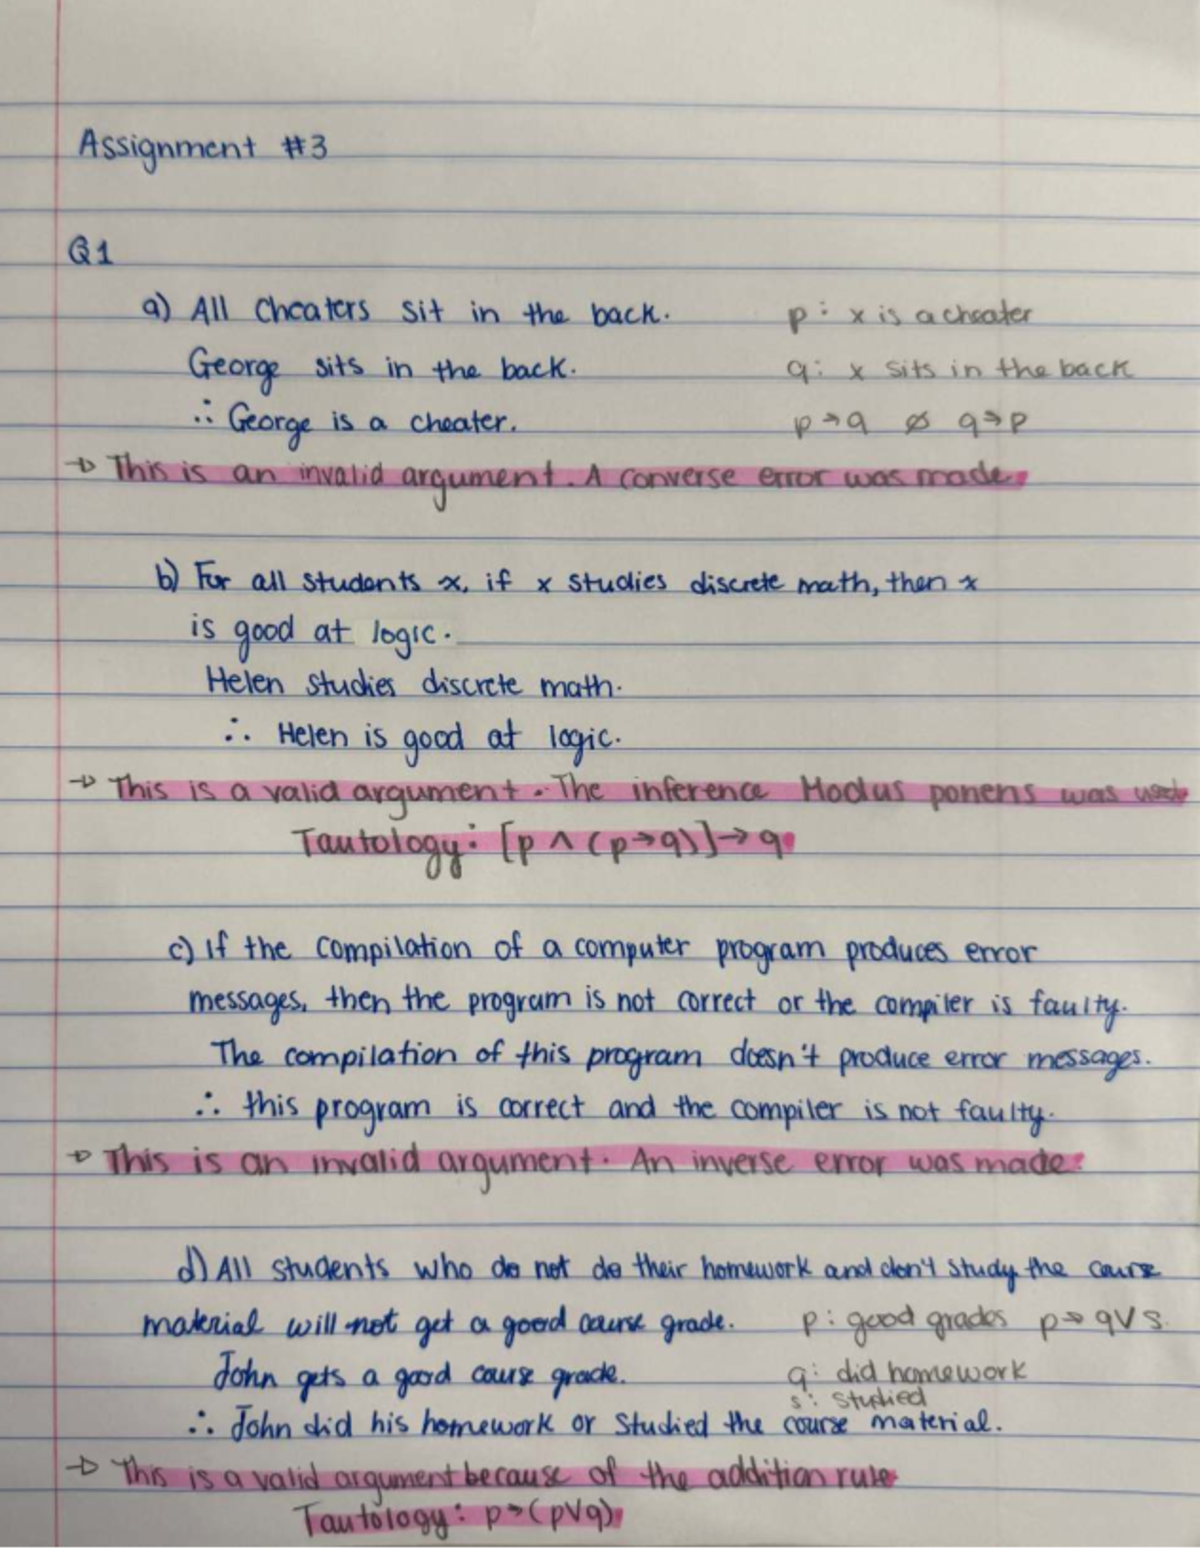 Assignment #3
Q1
a) All Cheaters sit in the back. p: x is a cheater
George sits in the back. q: x sits in the back
∴ George is a cheater. p→q q→p
→ This is an invalid argument. A converse error was made.
b) For all students x, if x studies discrete math, then x
is good at logic.
Helen studies discrete math.
∴ Helen is good at logic.
→ This is a valid argument. The inference Modus ponens was used
Tautology: [p ∧ (p→q)]→q
c) If the compilation of a computer program produces error
messages, then the program is not correct or the compiler is faulty.
The compilation of this program doesn't produce error messages.
∴ this program is correct and the compiler is not faulty.
→ This is an invalid argument. An inverse error was made.
d) All students who do not do their homework and don't study the course
material will not get a good course grade. p: good grades p→qVs
John gets a good course grade. q: did homework
s: studied
∴ John did his homework or studied the course material.
→ This is a valid argument because of the addition rule
Tautology: p→(pVq)